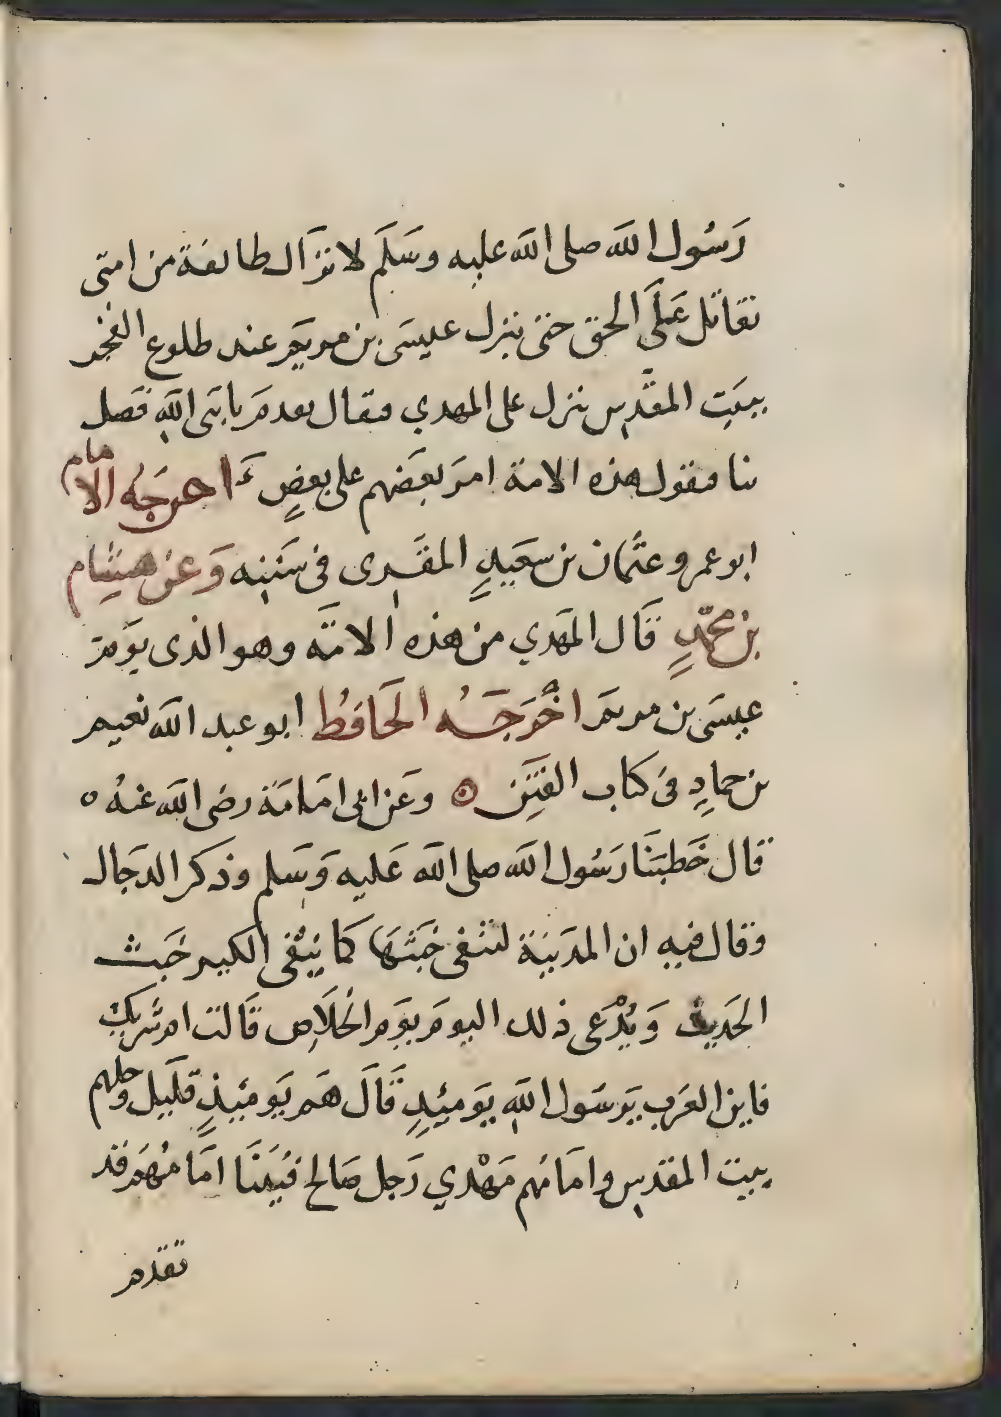 رَسُول الله صلى الله عليه وسَلَّم لا تزَال طائفة من امتى
تقاتل عَلَى الحق حتى ينزل عيسَى بن مريَم عند طلوع الفجر
ببيَت المقدّس ينزل على المهدي فيقال تقدم يا نبى الله فصل
بنا فيقول هذه الامة امرَ بعَضهم على بعضٍ اخرجَه الامام
ابو عمرو عثمان بن سعَيدٍ المقَرى فى سنَنه وَعن هشام
بن محمّدٍ قَال المهَدي من هذه الامَّة وهو الذى يوَم
عيسَى بن مريمَ اخْرَجَه الحَافظ ابو عبد الله نعيم
بن حمادٍ فى كتاب الفتَن وعَن ابى امَامَة رضى الله عنهُ
قال خَطبَنَا رَسُول الله صلى الله عَليه وَسَلم وذكر الدجَال
وقال فيه ان المدَينة لتنفى خَبَثهَا كمَا ينفى الكير خَبث
الحَديد وَيُدْعى ذلك اليومَ يوَم الخلَاص قَالت ام شريك
فاين العَرب يَرسَول الله يوَمئِدٍ قَالَ هَم يوَميَذٍ قلَيل وجلهم
ببيت المقدس وامَامُهم مَهْدي رَجل صَالح فبَينَا امَامُهَم قد
تقدم